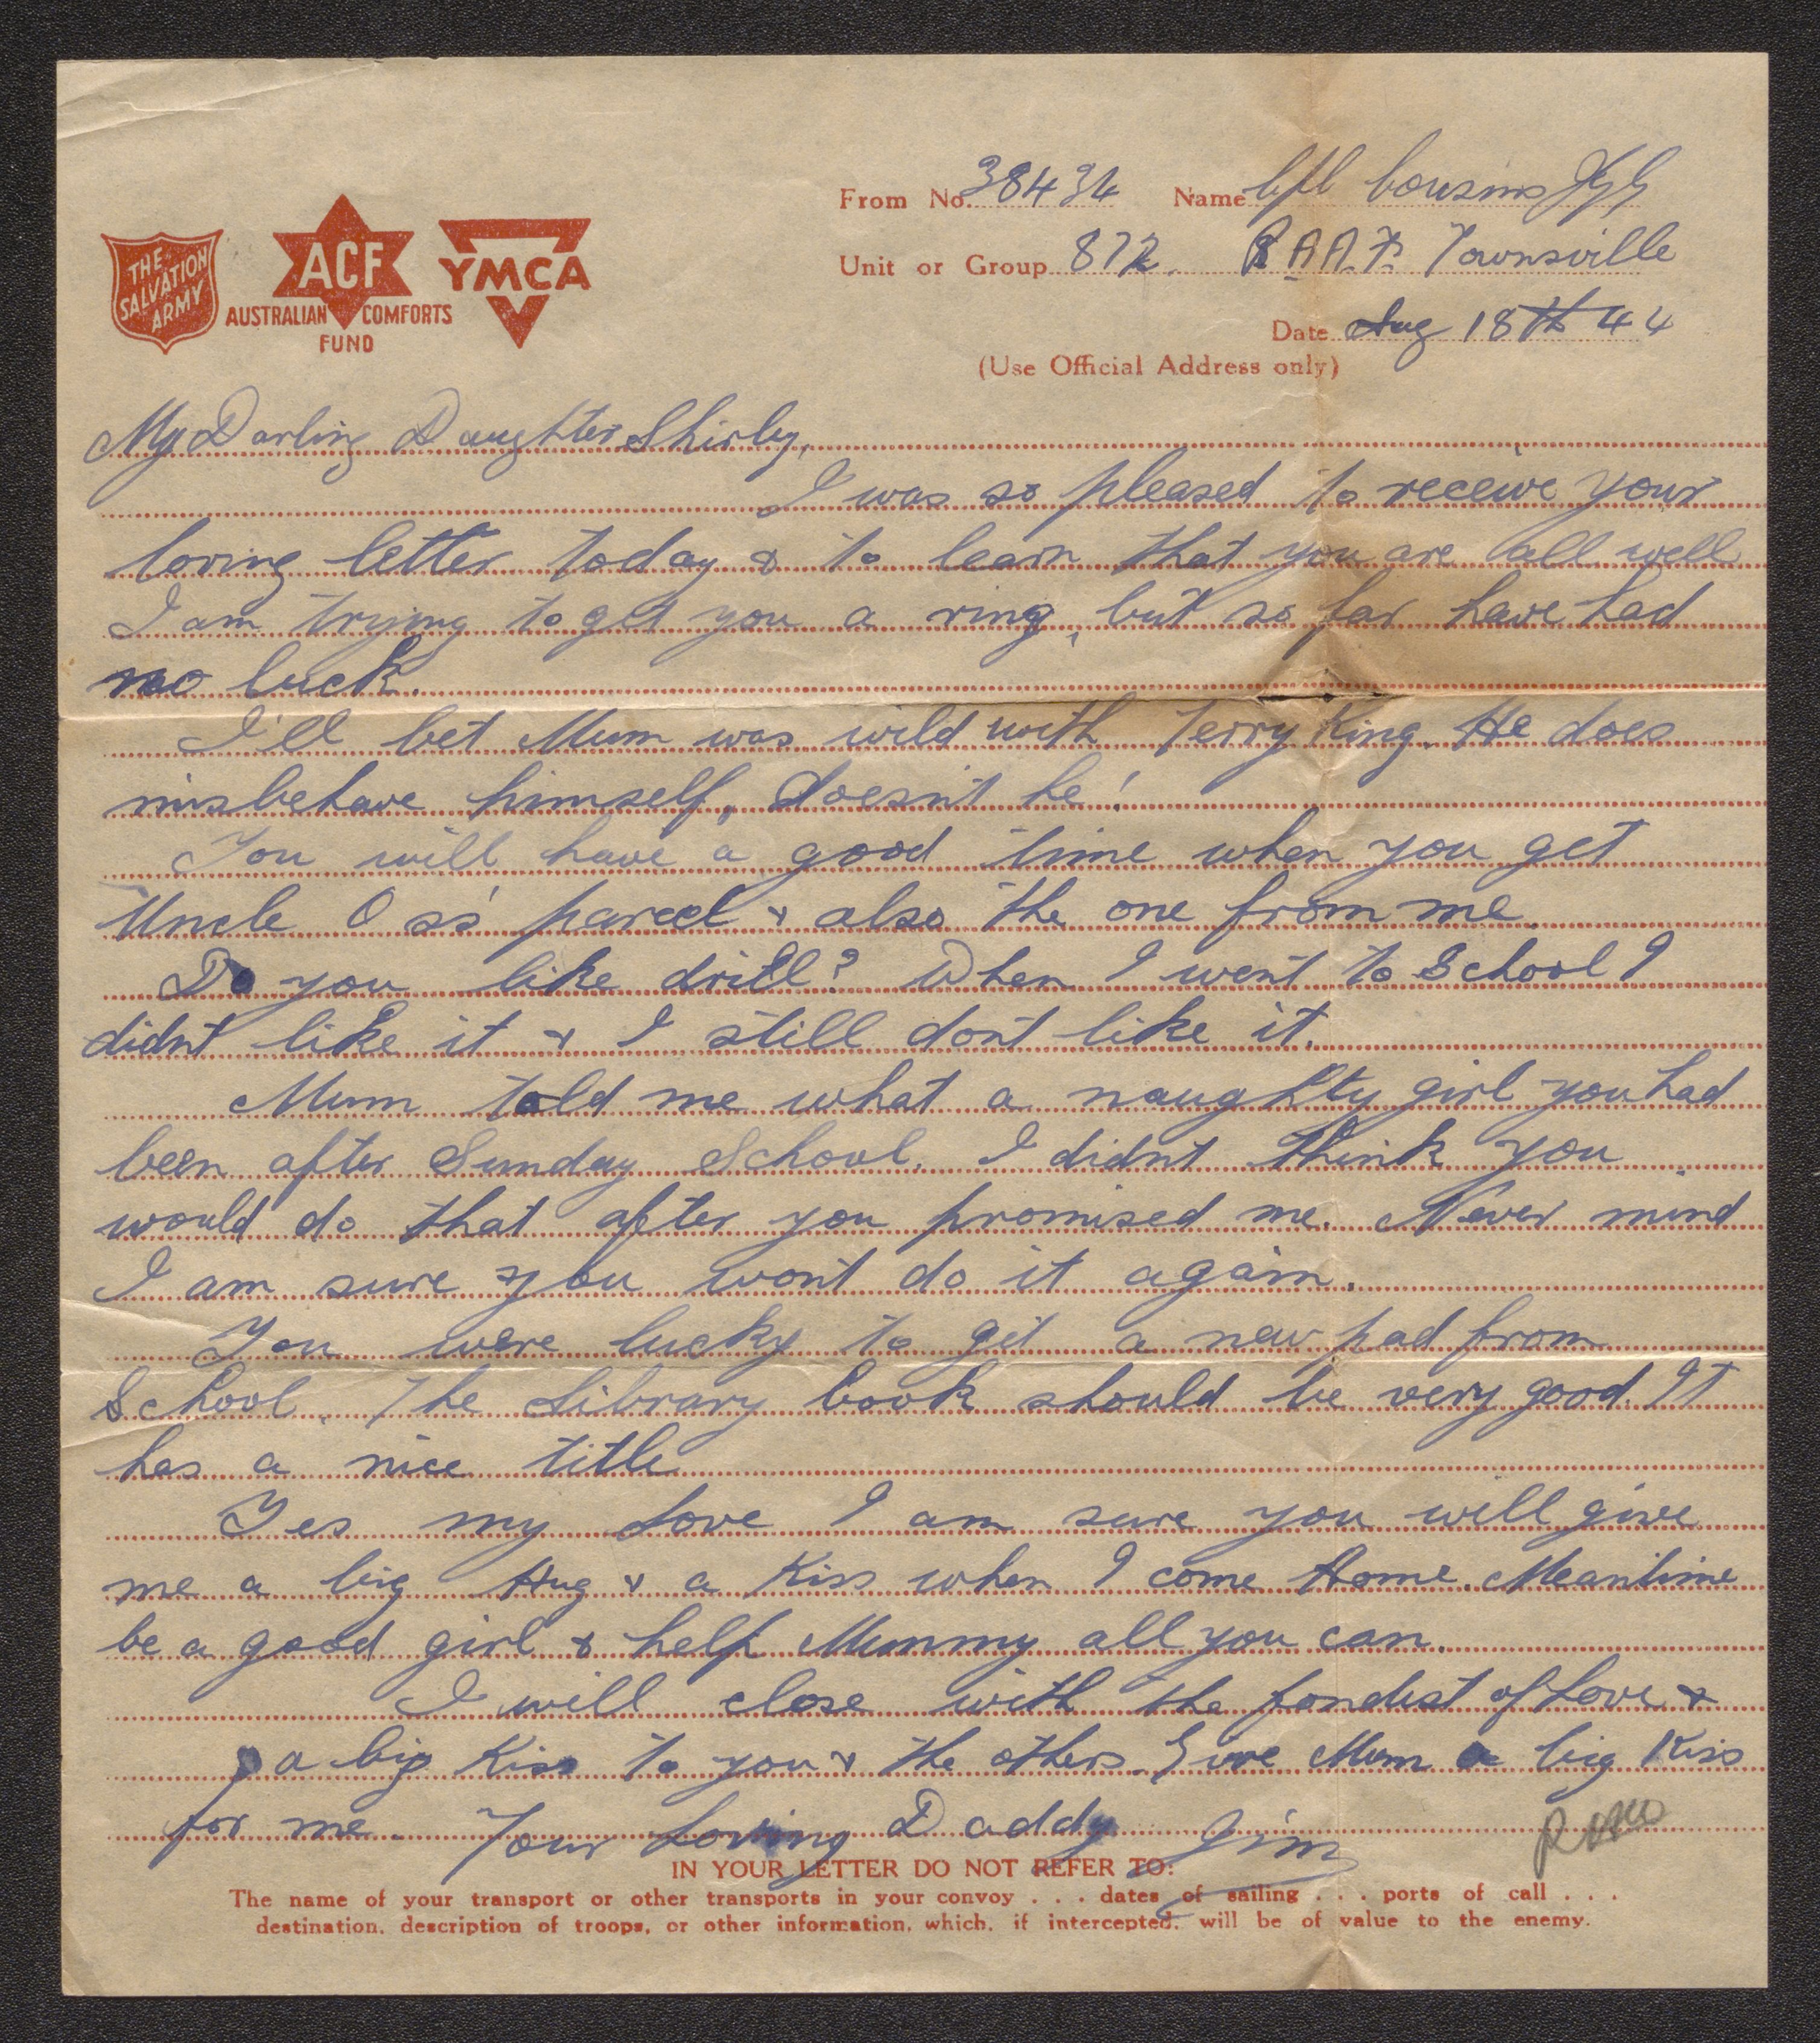 THE SALVATION ARMY
ACF
AUSTRALIAN COMFORTS FUND
YMCA
From No. 38434 Name Cpl Cousins J G
Unit or Group 872. R A A F. Townsville
Date Aug 18th 44
(Use Official Address only)
My Darling Daughter Shirley,
I was so pleased to receive your
loving letter today & to learn that you are all well
I am trying to get you a ring, but so far have had
no luck.
I'll bet Mum was wild with Terry King. He does
misbehave himself, doesn't he!
You will have a good time when you get
Uncle Oss' parcel & also the one from me
Do you like drill? When I went to School I
didnt like it & I still dont like it.
Mum told me what a naughty girl you had
been after Sunday School. I didnt think you
would do that after you promised me. Never mind
I am sure you wont do it again.
You were lucky to get a new pad from
School. The Library book should be very good. It
has a nice title
Yes my Love I am sure you will give
me a big Hug & a Kiss when I come Home. Meantime
be a good girl & help Mummy all you can.
I will close with the fondest of Love &
a big Kiss to you & the others. Give Mum a big Kiss
for me. Your Loving Daddy Jim
IN YOUR LETTER DO NOT REFER TO:
The name of your transport or other transports in your convoy . . . dates of sailing . . . ports of call . . .
destination, description of troops, or other information, which, if intercepted, will be of value to the enemy.